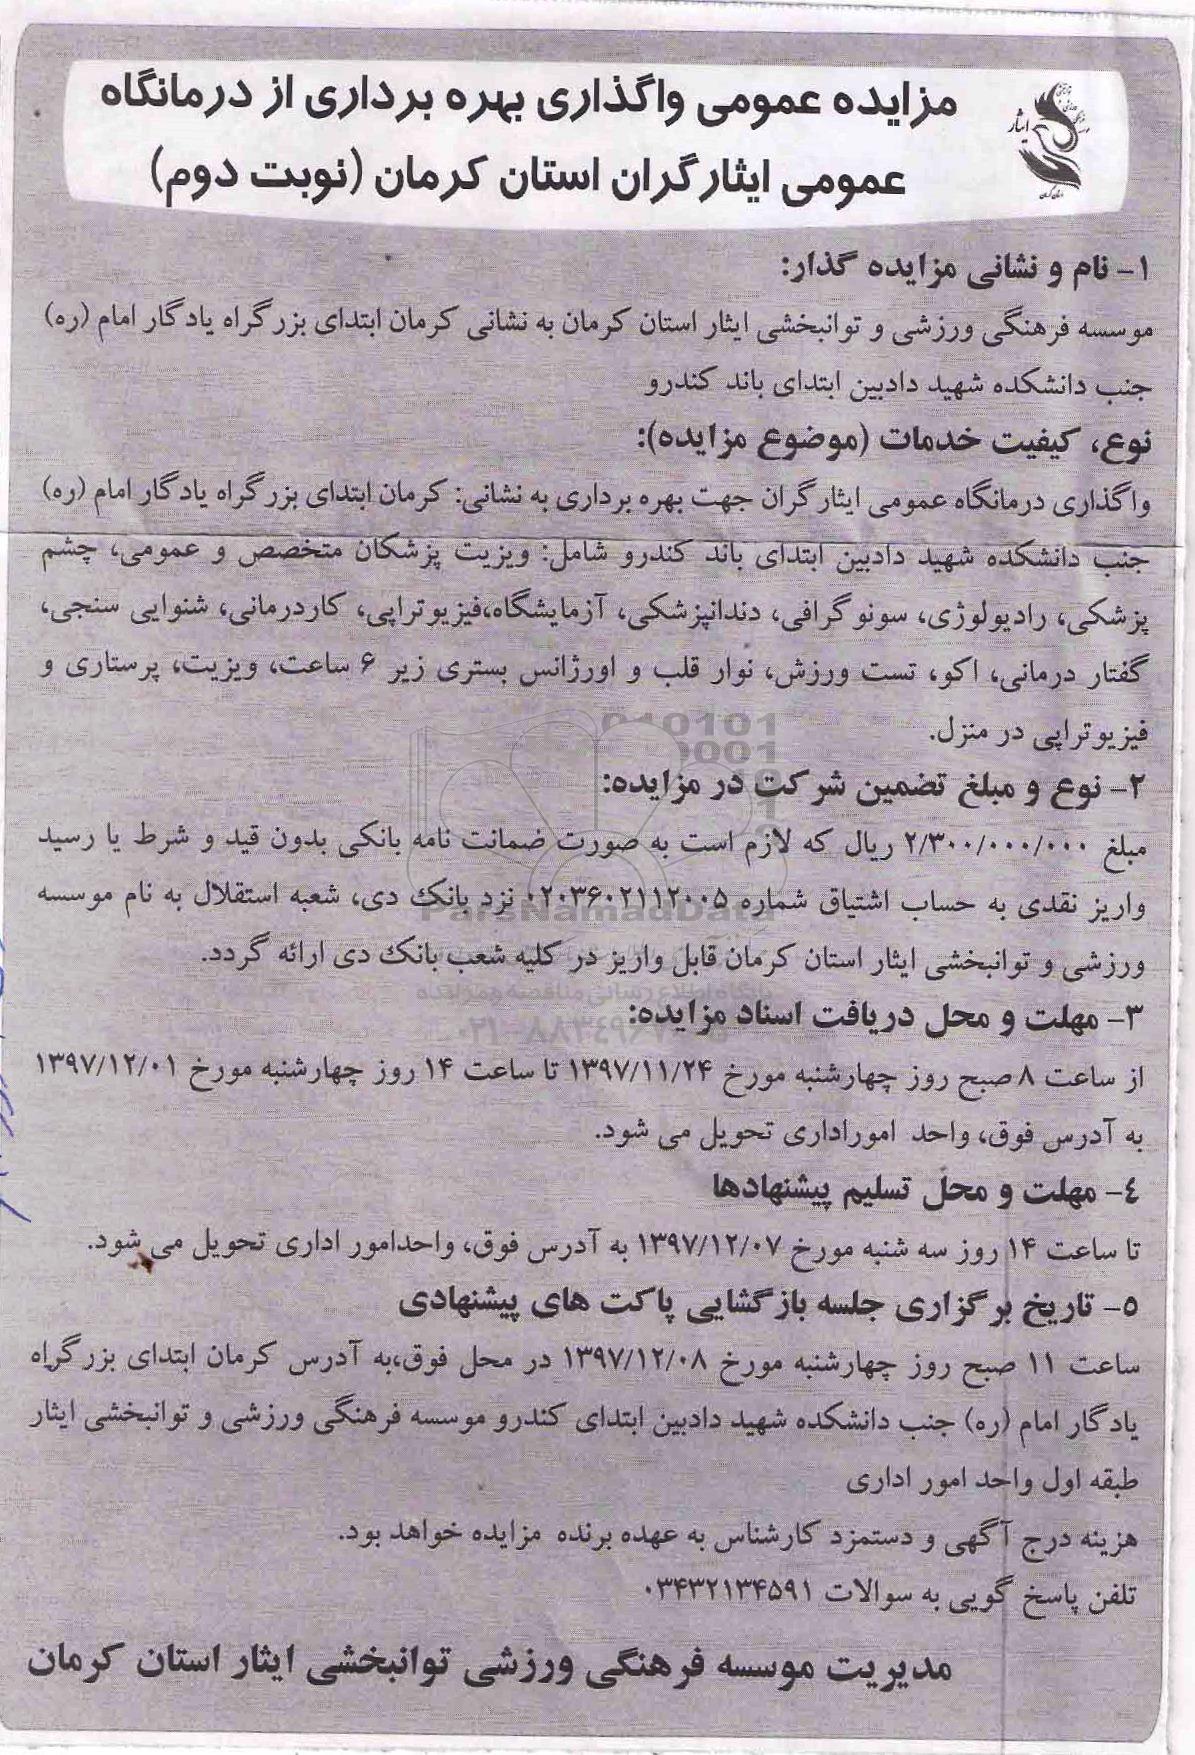 مزایده عمومی واگذاری بهره برداری از درمانگاه
عمومی ایثارگران استان کرمان (نوبت دوم)
ایثار
۱- نام و نشانی مزایده گذار:
موسسه فرهنگی ورزشی و توانبخشی ایثار استان کرمان به نشانی کرمان ابتدای بزرگراه یادگار امام (ره)
جنب دانشکده شهید دادبین ابتدای باند کندرو
نوع، کیفیت خدمات (موضوع مزایده):
واگذاری درمانگاه عمومی ایثارگران جهت بهره برداری به نشانی: کرمان ابتدای بزرگراه یادگار امام (ره)
جنب دانشکده شهید دادبین ابتدای باند کندرو شامل: ویزیت پزشکان متخصص و عمومی، چشم
پزشکی، رادیولوژی، سونوگرافی، دندانپزشکی، آزمایشگاه،فیزیوتراپی، کاردرمانی، شنوایی سنجی،
گفتار درمانی، اکو، تست ورزش، نوار قلب و اورژانس بستری زیر ۶ ساعت، ویزیت، پرستاری و
فیزیوتراپی در منزل.
۲- نوع و مبلغ تضمین شرکت در مزایده:
مبلغ ۲/۳۰۰/۰۰۰/۰۰۰ ریال که لازم است به صورت ضمانت نامه بانکی بدون قید و شرط یا رسید
واریز نقدی به حساب اشتیاق شماره ۰۲۰۳۶۰۲۱۱۲۰۰۵ نزد بانک دی، شعبه استقلال به نام موسسه
ParsNamadData
ورزشی و توانبخشی ایثار استان کرمان قابل واریز در کلیه شعب بانک دی ارائه گردد.
پایگاه اطلاع رسانی مناقصه و مزایده
۳- مهلت و محل دریافت اسناد مزایده:
از ساعت ۸ صبح روز چهارشنبه مورخ ۱۳۹۷/۱۱/۲۴ تا ساعت ۱۴ روز چهارشنبه مورخ ۱۳۹۷/۱۲/۰۱
به آدرس فوق، واحد اموراداری تحویل می شود.
٤- مهلت و محل تسلیم پیشنهادها
تا ساعت ۱۴ روز سه شنبه مورخ ۱۳۹۷/۱۲/۰۷ به آدرس فوق، واحدامور اداری تحویل می شود.
۵- تاریخ برگزاری جلسه بازگشایی پاکت های پیشنهادی
ساعت ۱۱ صبح روز چهارشنبه مورخ ۱۳۹۷/۱۲/۰۸ در محل فوق،به آدرس کرمان ابتدای بزرگراه
یادگار امام (ره) جنب دانشکده شهید دادبین ابتدای کندرو موسسه فرهنگی ورزشی و توانبخشی ایثار
طبقه اول واحد امور اداری
هزینه درج آگهی و دستمزد کارشناس به عهده برنده مزایده خواهد بود.
تلفن پاسخ گویی به سوالات ۰۳۴۳۲۱۳۴۵۹۱
مدیریت موسسه فرهنگی ورزشی توانبخشی ایثار استان کرمان